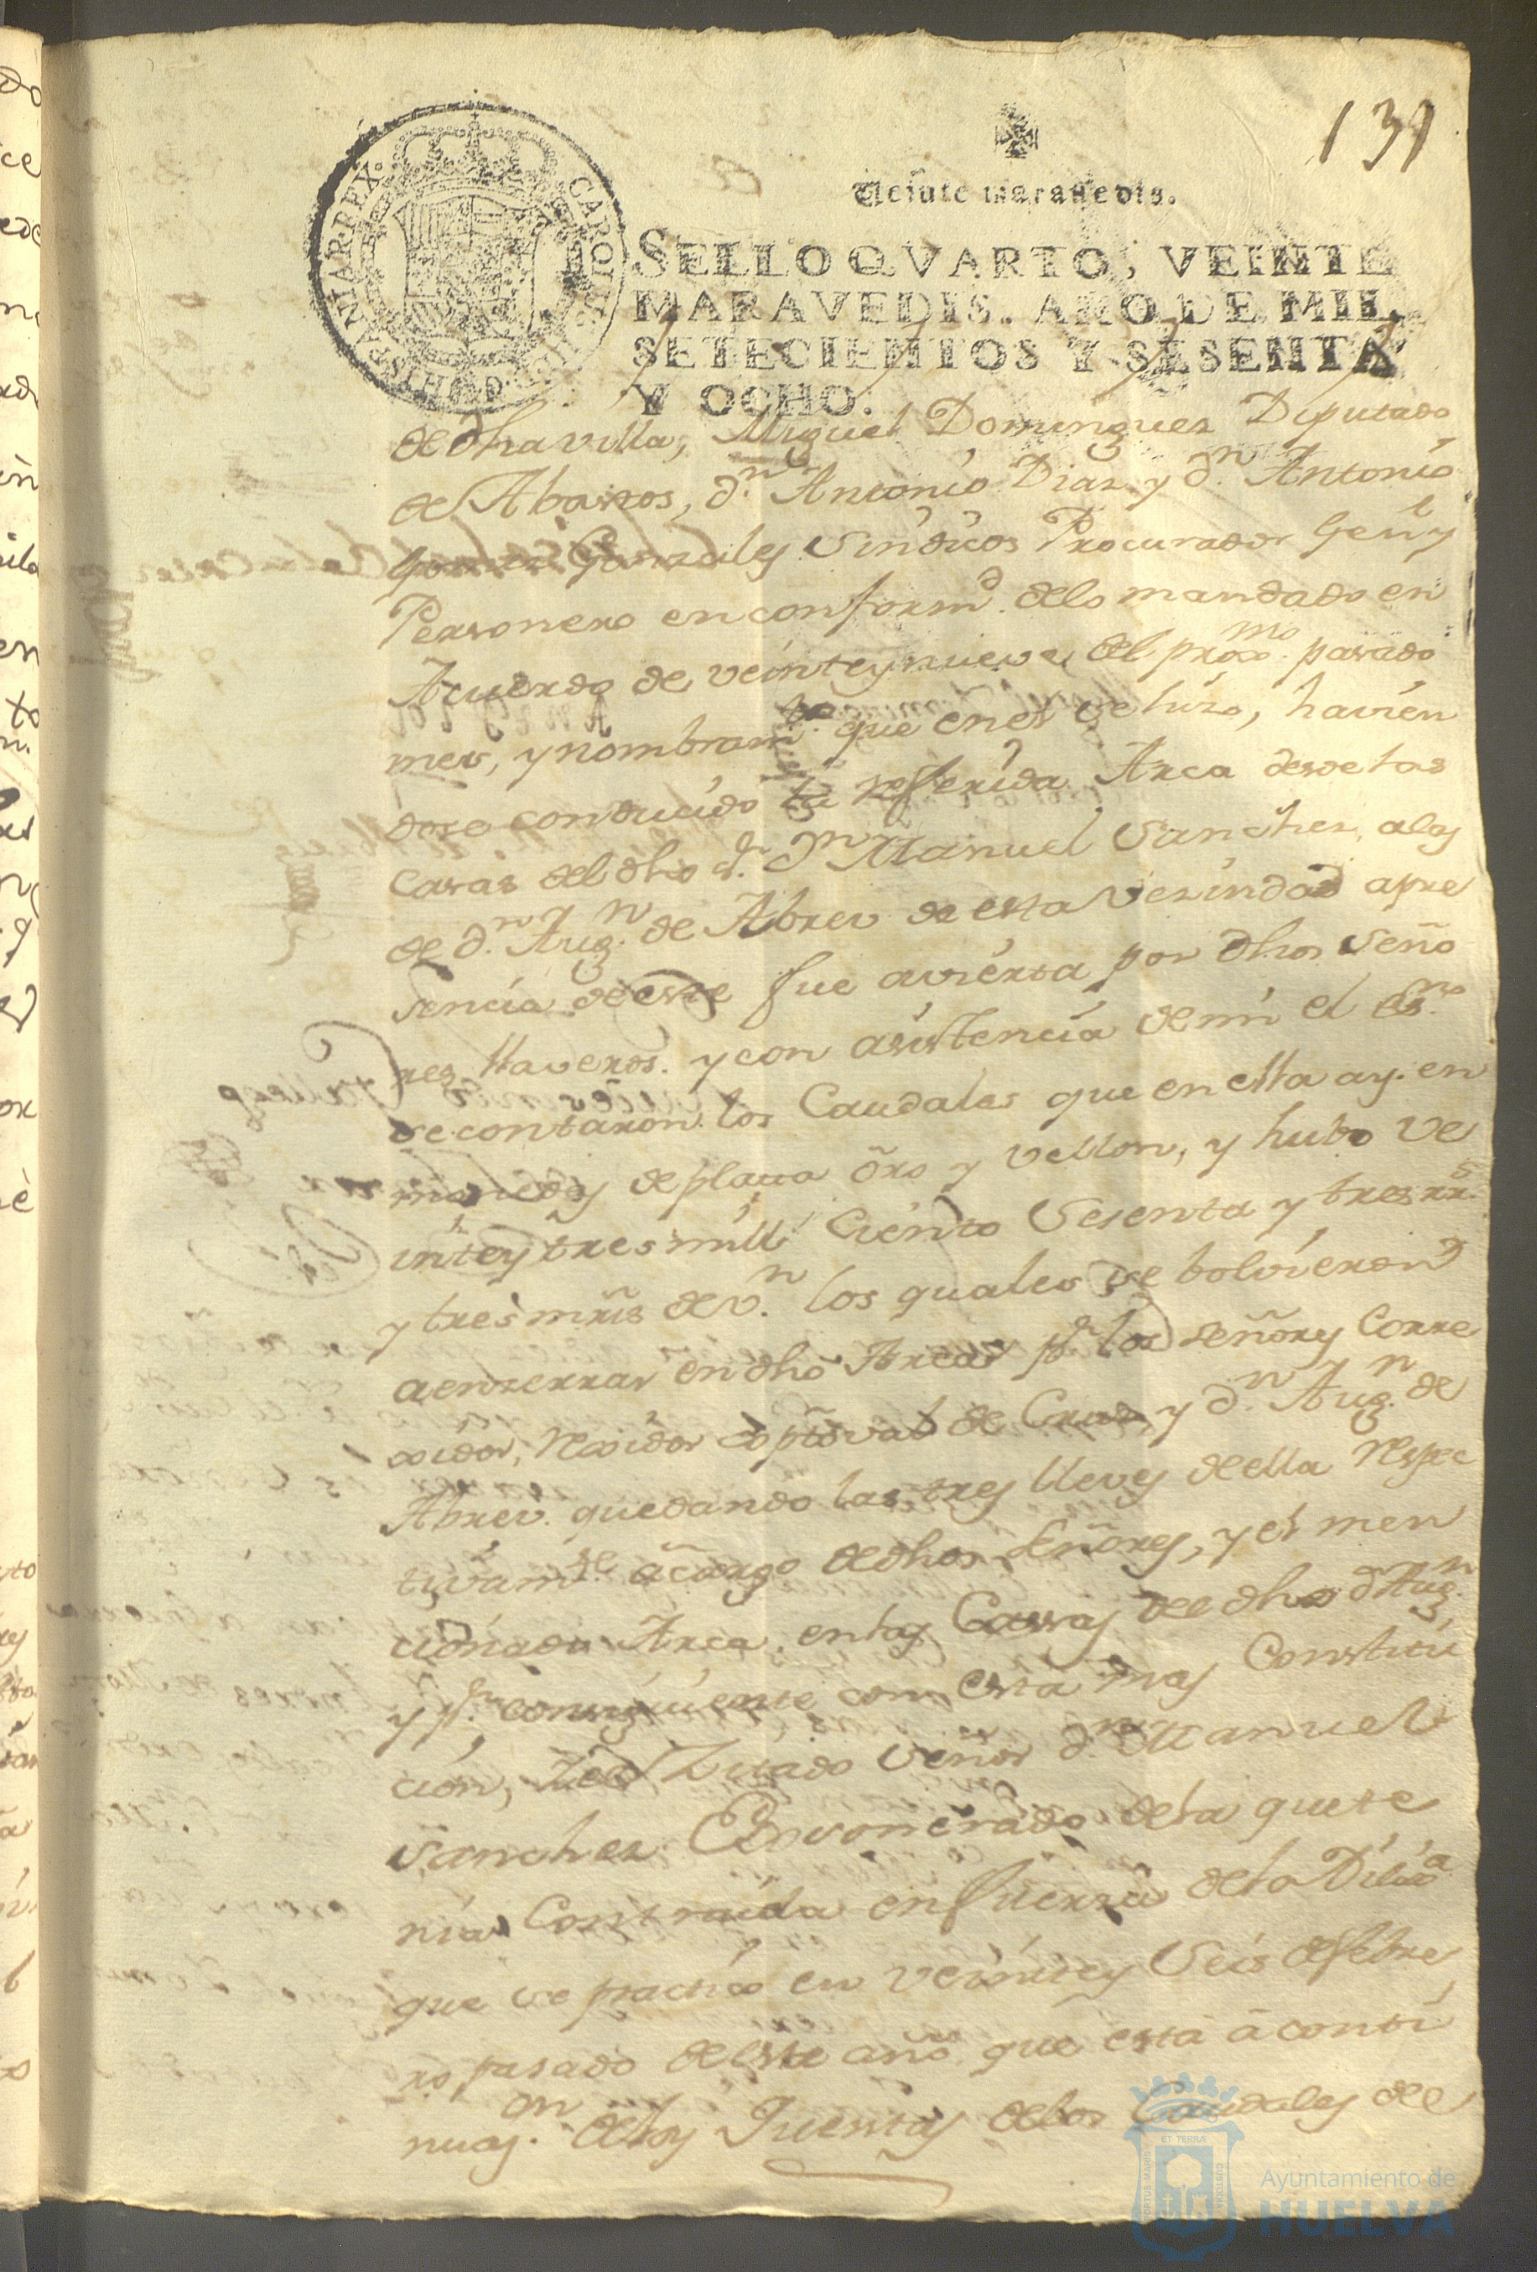 131
Veinte maravedis.
CAROLUS III D G HISPANIAR REX
SELLO QVARTO, VEINTE
MARAVEDIS, AÑO DE MIL
SETECIENTOS Y SESENTA
Y OCHO.
de dha villa, Miguel Dominguez Diputado
de Abastos, dn. Antonio Diaz y dn. Antonio
Gonzales Sindicos Procurador Genl y
Personero en conformd. delo mandado en
Acuerdo de veinte y nueve del proxmo. pasado
mes, y nombramto. que en el se hizo, havien
dose conducido la referida Arca desde las
Casas del dho Sr. Dn Manuel Sanchez, a las
de dn. Augn. de Abreu de esta Vezindad apre
sencia de este fue avierta por dhos Seño
res llaveros. y con asistencia de mi el Esno.
se contaron los Caudales que en ella ay. en
monedas de plata oro y vellon, y hubo ve
inte y tres mill Ciento Sesenta y tres rrs.
y tres mrs de vn. los quales se bolvieron
a enzerrar en dha Arca pr. los señores Corre
xidor, Rexidor Christoval de Cruz, y dn. Augn. de
Abreu. quedando las tres lleves de ella respec
tivamte. a cargo de dhos Señores, y el men
cionada Arca en las Casas del dho dn Augn.
y pr. consiguiente con esta mas Constitu
cion, Señor dn Manuel
Sanchez Exonerado de la que te
nia Contraida en fuerza de la Diliga
que se practico en veinte y Seis de febre
ro, pasado de este año que esta a conti
nuaon. de las Quentas de los Caudales de
ET TERRAE
Ayuntamiento de
HUELVA